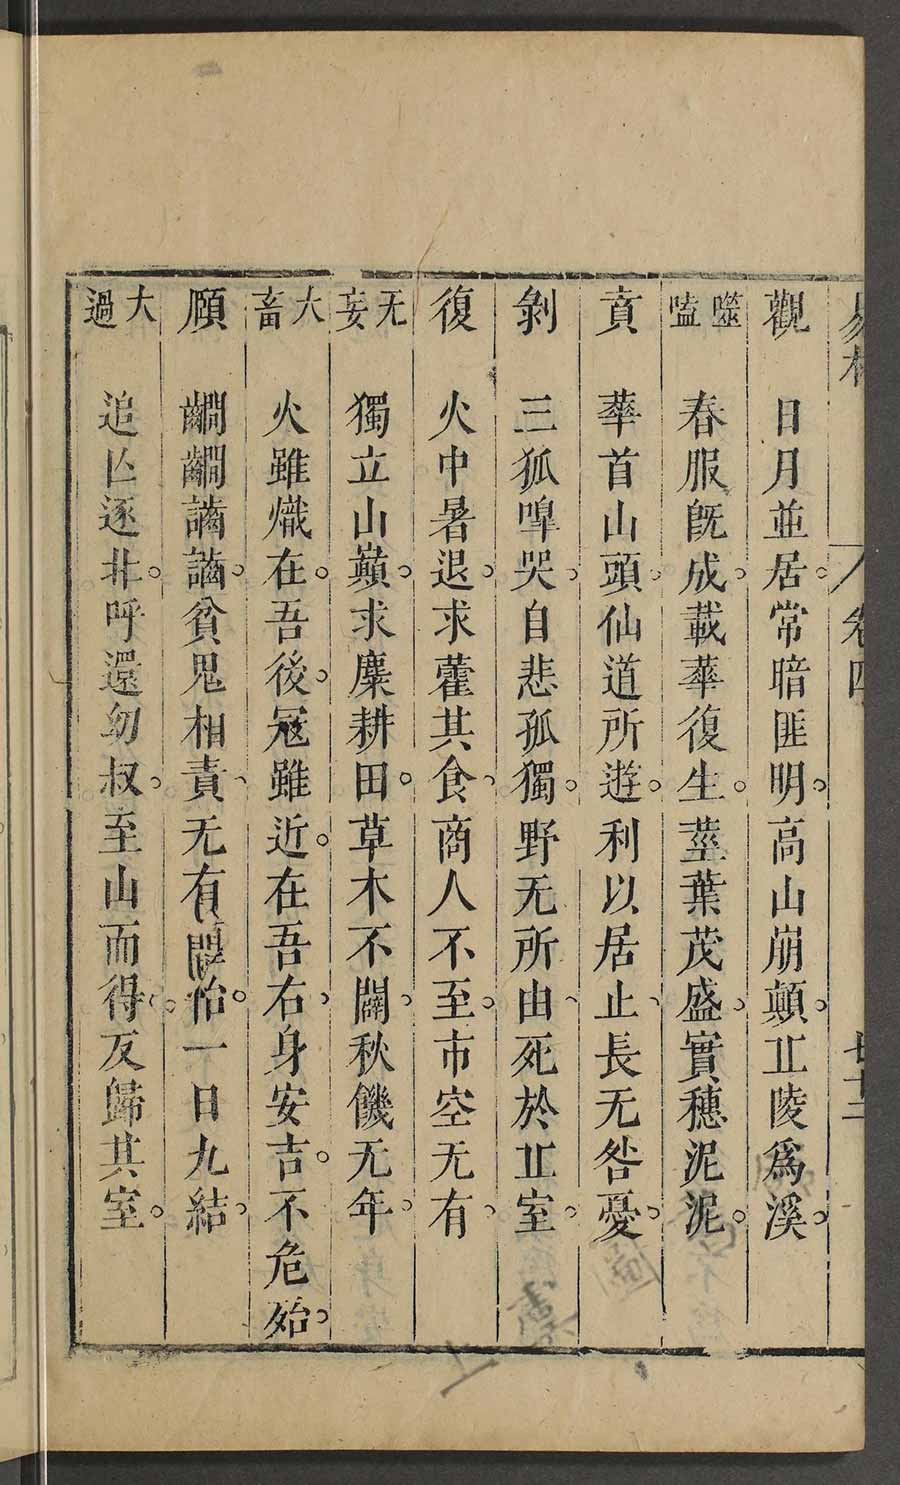 易林 卷四 廿三
觀 日月並居常暗匪明高山崩顛丘陵爲溪
噬嗑 春服旣成載華復生莖葉茂盛實穗泥泥
賁 華首山頭仙道所遊利以居止長无咎憂
剝 三狐嘷哭自悲孤獨野无所由死於丘室
復 火中暑退求藿其食商人不至市空无有
无妄 獨立山巔求麋耕田草木不闢秋饑无年
大畜 火雖熾在吾後冦雖近在吾右身安吉不危殆
頤 齺齺齰齰貧鬼相責无有懽怡一日九結
大過 追亾逐北呼還幼叔至山而得反歸其室